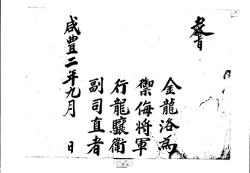 金龍洛為
禦侮將軍
行龍驤衛
副司直者
咸豊二年九月 日